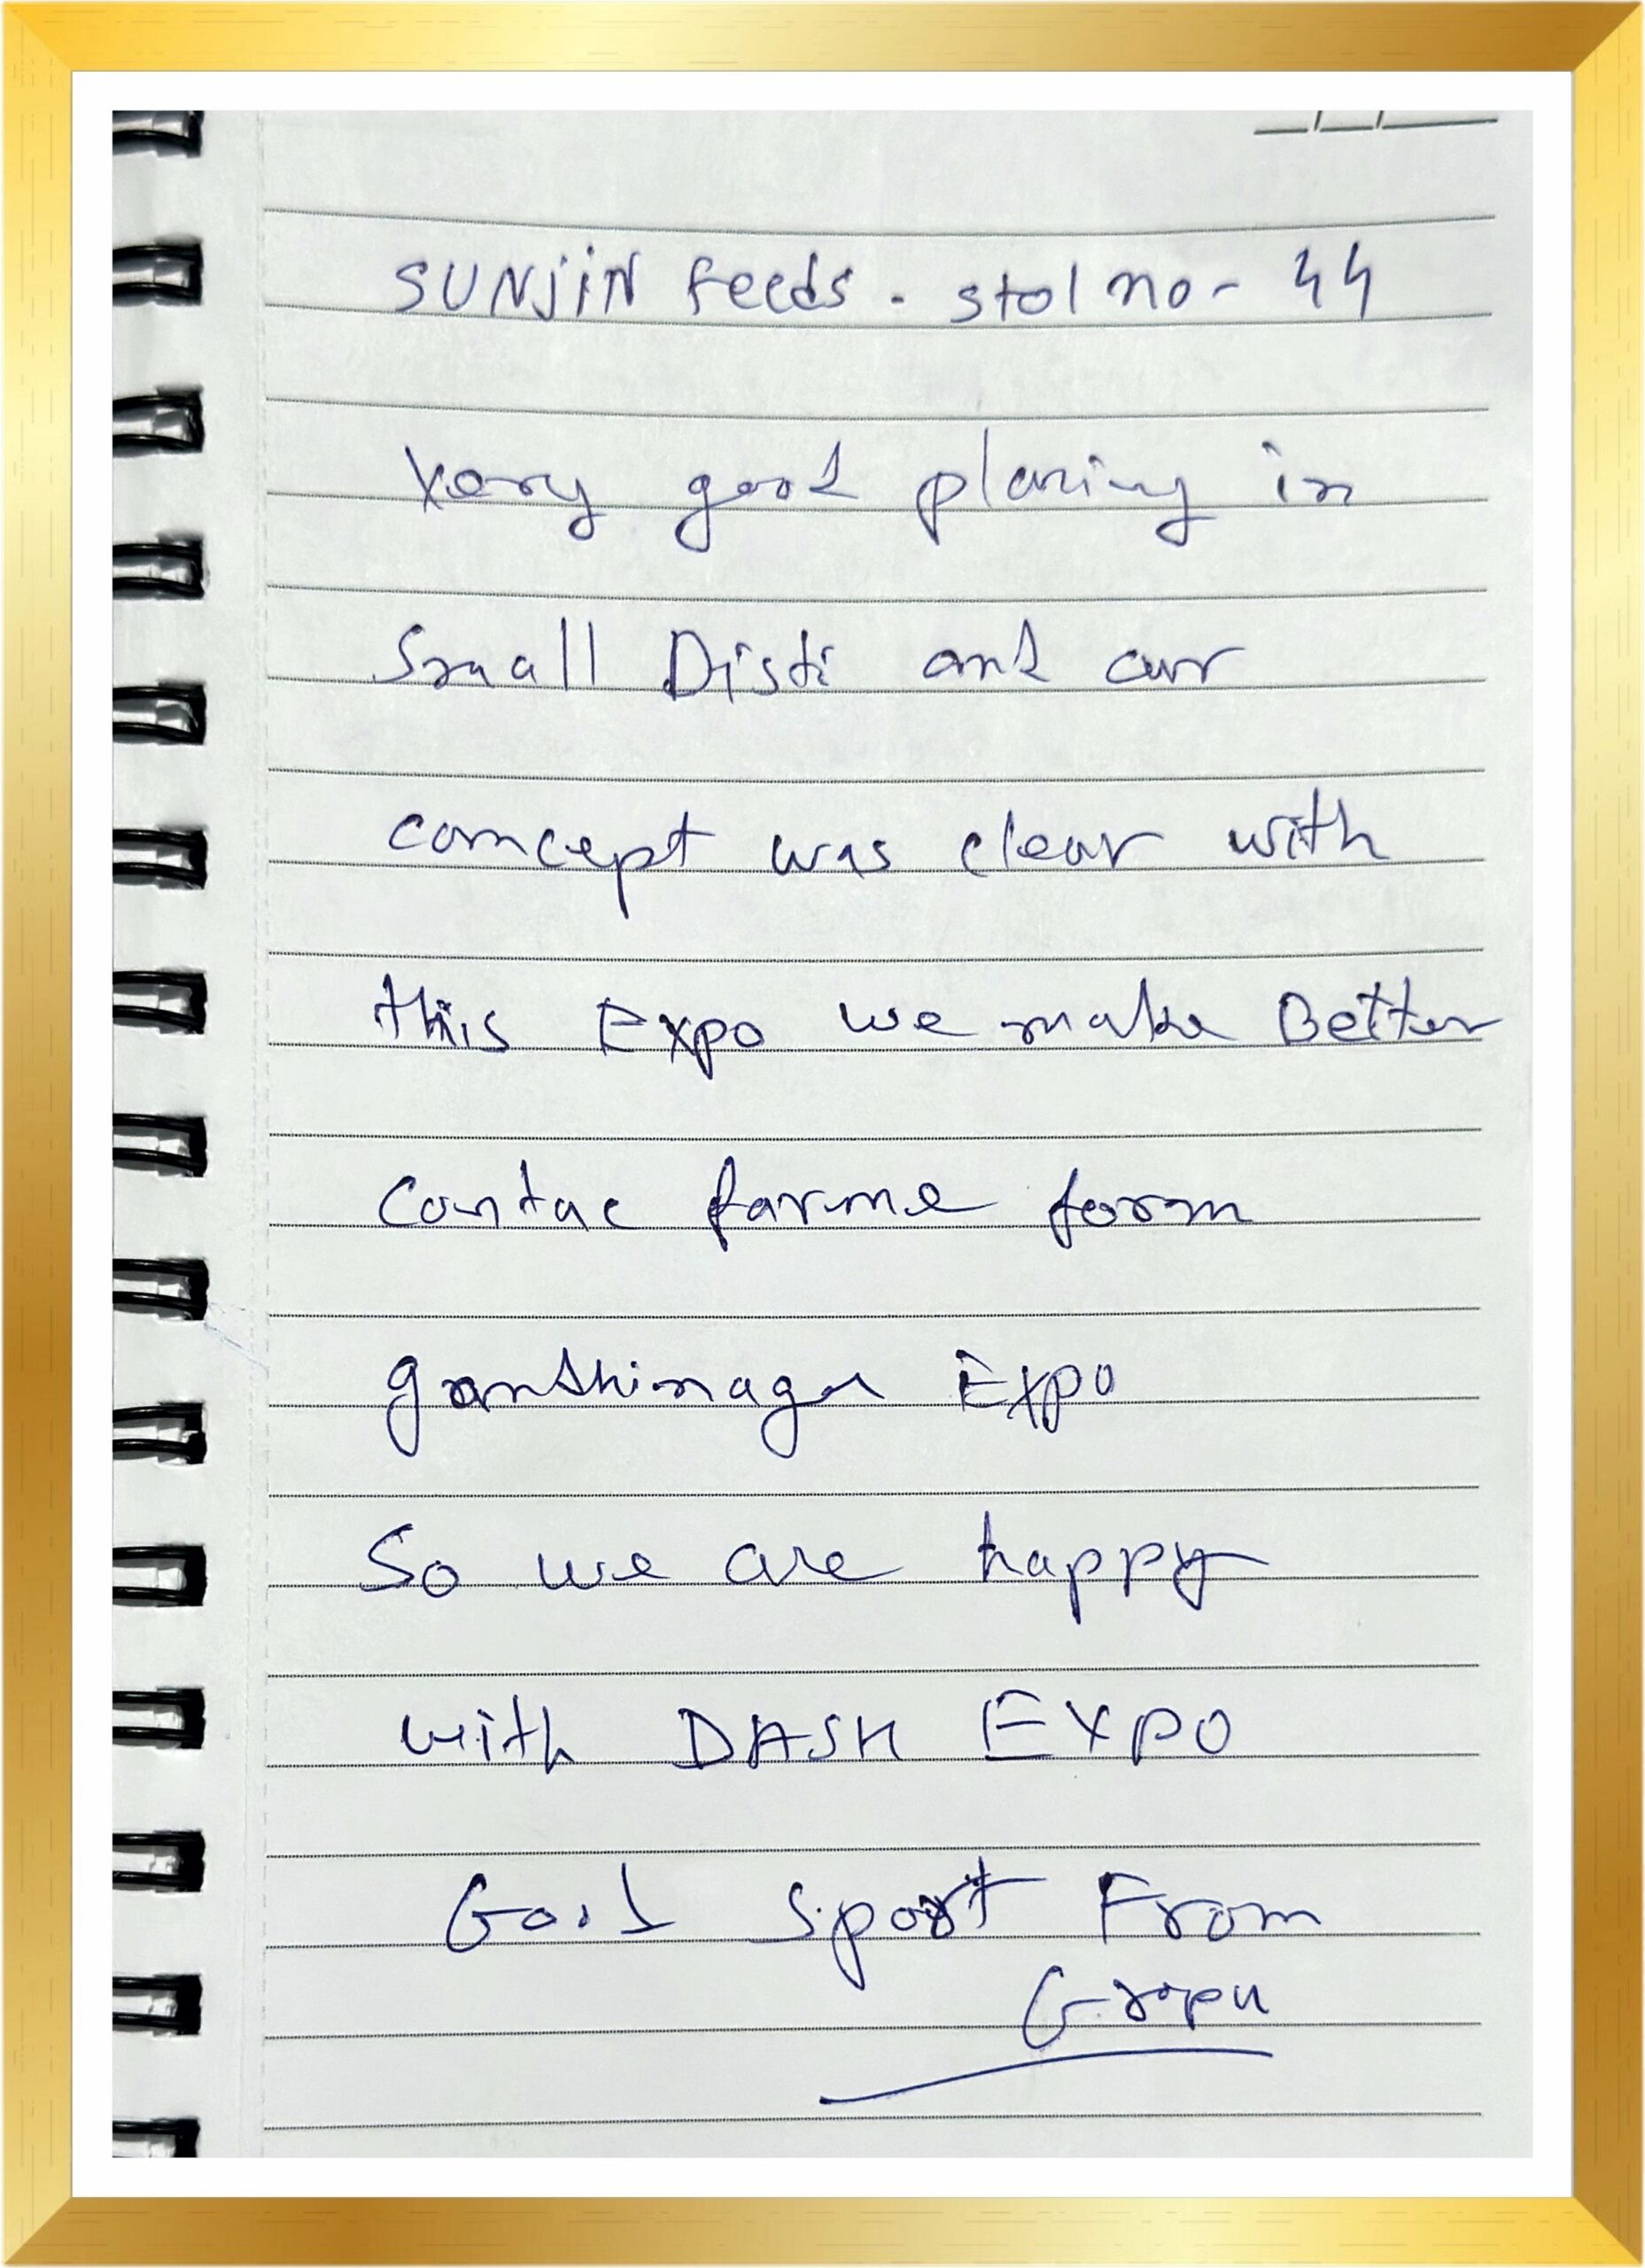 SUNJIN feeds. stol no- 44
Very good planing in
Small Disti and our
concept was clear with
this Expo we make Better
Contac farme form
gandhinagar Expo
So we are happy
with DASH EXPO
Good Sport From
Gropu